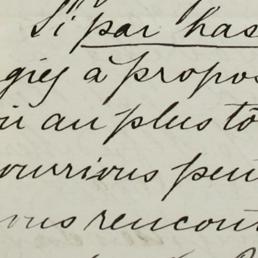 Si par has
giez à propos
ir au plus tô
ourrions peut
ous rencont